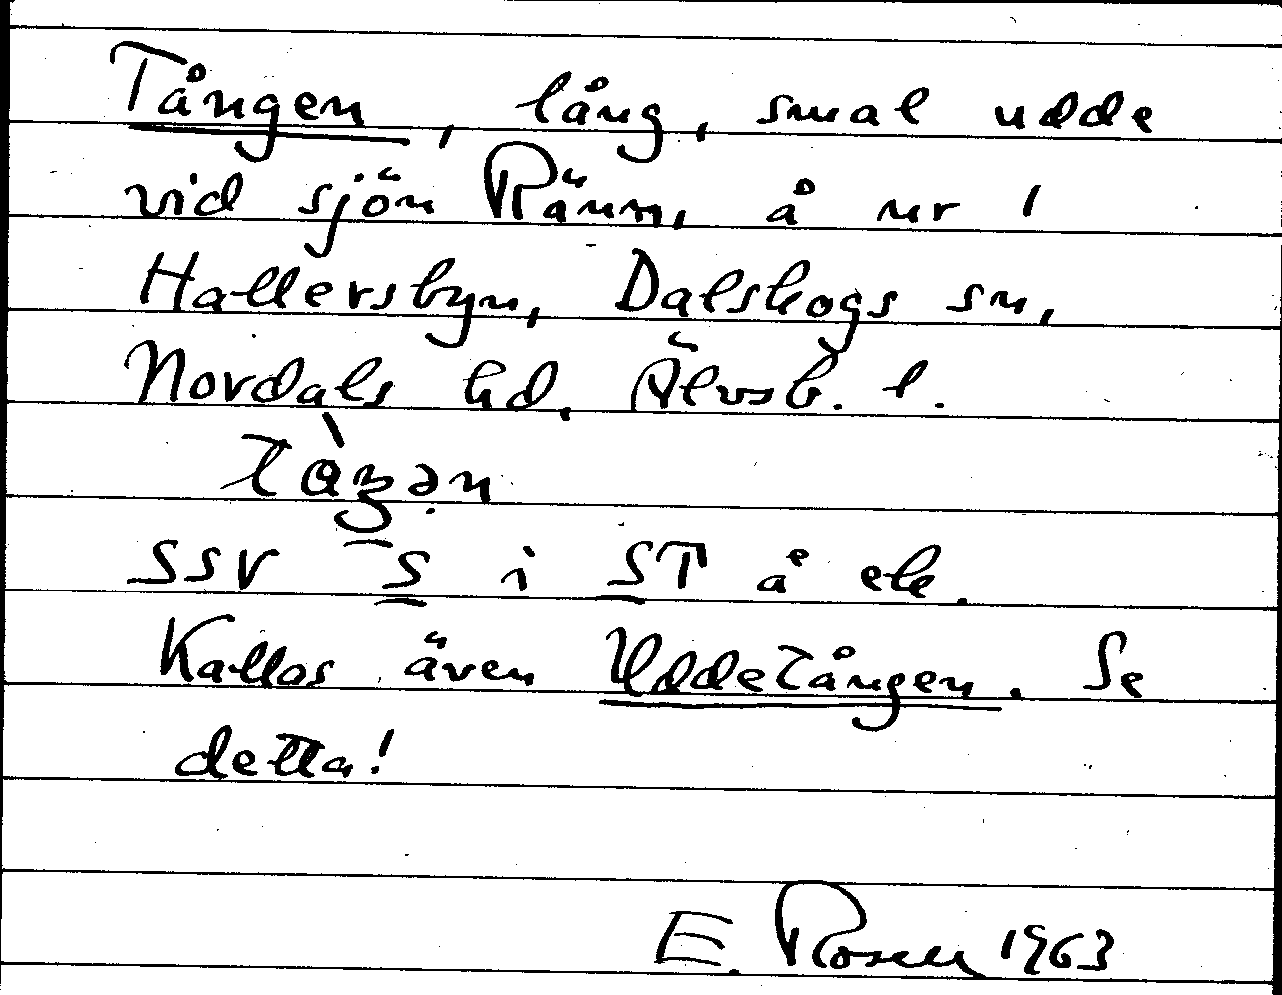 Tången, lång, smal udde
vid sjön Ränn, å nr 1
Hallersbyn, Dalskogs sn,
Nordals hd. Älvsb. l.
tàŋən
SSV S i ST å ek.
Kallas även Uddetången. Se
detta!
E. Rosell 1963